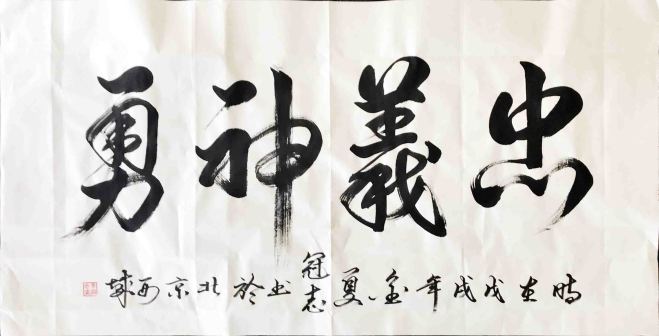 忠義神勇
時在戊戌年金夏冠志书於北京西城